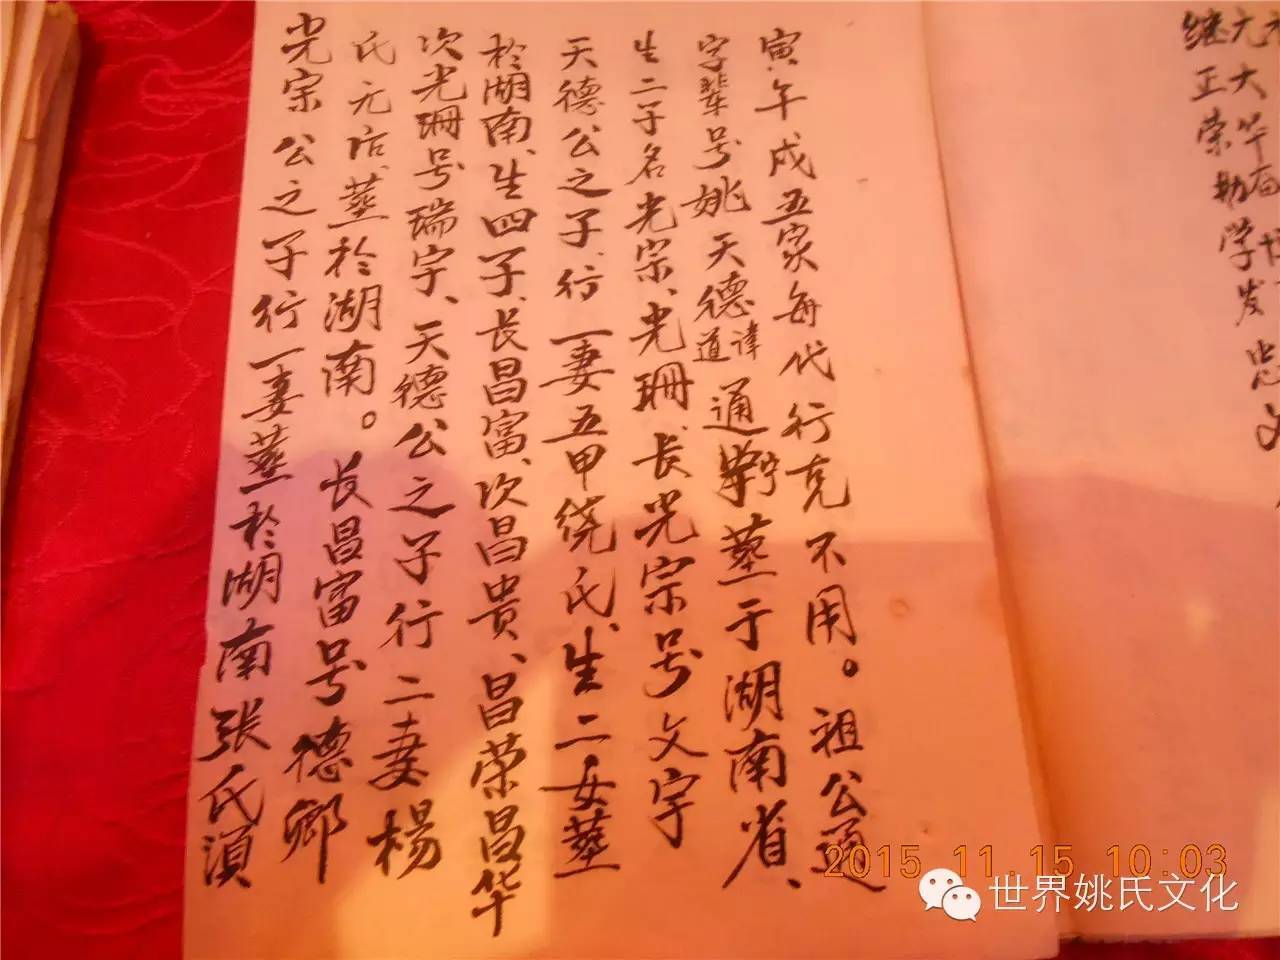 继
正大华
荣
勤
学
发
忠
文
寅午戌五家每代行克不用。祖公通
字辈号姚天德讳道通葬于湖南省、
生二子名光宗、光珊、长光宗号文宇
天德公之子、行一妻五甲绕氏、生二女葬
於湖南、生四子、长昌富、次昌贵、昌荣昌华
次光珊号瑞宇、天德公之子行二妻杨
氏无后、葬於湖南。长昌富号德卿
光宗公之子行一妻葬於湖南张氏滇
2015.11.15 10:03
世界姚氏文化